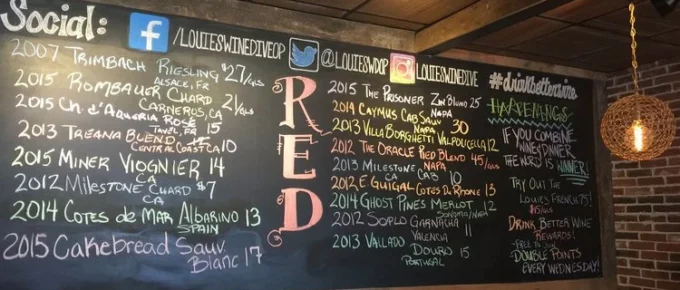 Social:
f /LOUIESWINEDIVEOP
@LOUIESWDOP
LOUIESWINEDIVE
2007 TRIMBACH RIESLING $27/GLS
ALSACE, FR
2015 ROMBAUER CHARD 21/GLS
CARNEROS, CA
2015 CH d'AQUERIA ROSÉ 15
TAVEL, FR
2013 TREANA BLEND 10
CENTRAL COAST CA
2015 MINER VIOGNIER 14
CA
2012 MILESTONE CHARD $7
CA
2014 COTES de MAR ALBARINO 13
SPAIN
2015 Cakebread Sauv.
Blanc 17
RED
2015 THE PRISONER ZIN BLEND 25
NAPA
2014 CAYMUS CAB SAUV 30
NAPA
2013 VILLA BORGHETTI VALPOLICELLA 12
2012 THE ORACLE RED BLEND 45/GLS
NAPA
2013 MILESTONE CAB 10
CA
2012 E. GUIGAL COTES DU RHONE 13
2014 GHOST PINES MERLOT 12
SONOMA/NAPA
2012 SOPLO GARNACHA 11
VALENCIA
2013 VALLADO 15
DOURO
PORTUGAL
#drinkbetterwine
HAPPENINGS
IF YOU COMBINE
WINE & DINNER
THE WORD IS WINNER!
TRY OUT THE
LOUIES FRENCH 75!
DRINK BETTER WINE
REWARDS!
-FREE TO JOIN
DOUBLE POINTS
EVERY WEDNESDAY!